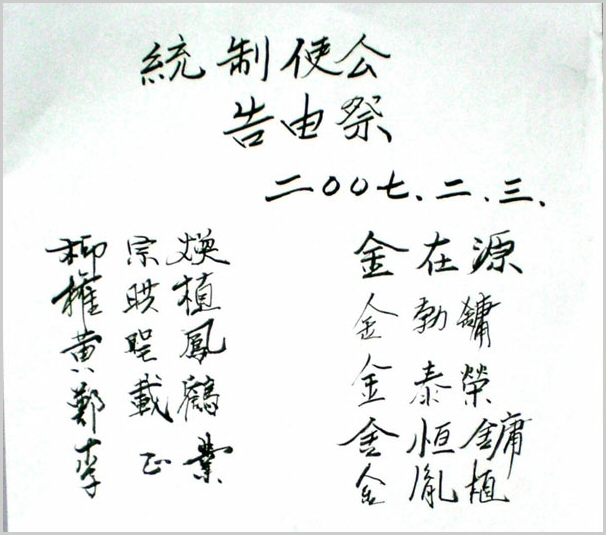 統制使公
告由祭
二〇〇七.二.三.
金在源
金勃鏞
金泰榮
金恒鏞
金胤植
柳宗煥
權晎植
黄聖鳳
鄭載鶴
李正業